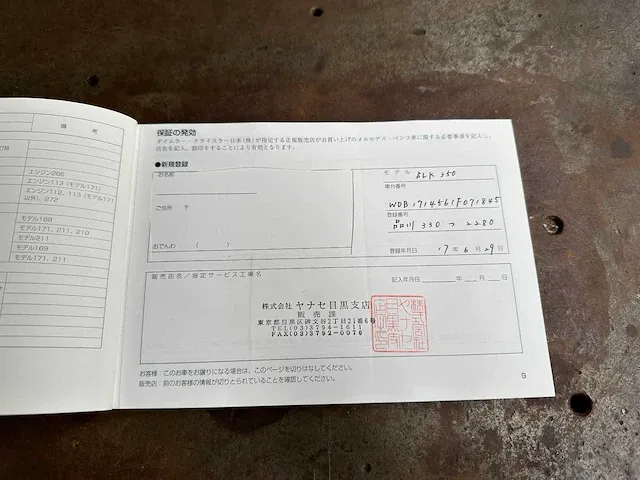 備 考
エンジン266
エンジン113 (モデル171)
エンジン112, 113 (モデル171
以外), 272
モデル169
モデル171, 211, 219
モデル211
モデル169
モデル171, 211
保証の発効
ダイムラー・クライスラー日本(株)が指定する正規販売店がお買い上げのメルセデス・ベンツ車に関する必要事項を記入し、
店名を記入、捺印をすることにより有効となります。
●新規登録
お名前
ご住所 〒
おでんわ ( )
モ デ ル SLK 350
車台番号
WDB1714561F071845
登録番号
品川 330 つ 2280
登録年月日 17 年 6 月 29 日
販売店名/指定サービス工場名
記入年月日 年 月 日
株式会社 ヤナセ目黒支店
販 売 課
東京都目黒区碑文谷2丁目21番6号
TEL(03)3794-1611
FAX(03)3792-0076
お客様:このお車をお譲りになる場合は、このページを切りはなしてください。
販売店:前のお客様の情報が切りとられていることを確認してください。
9